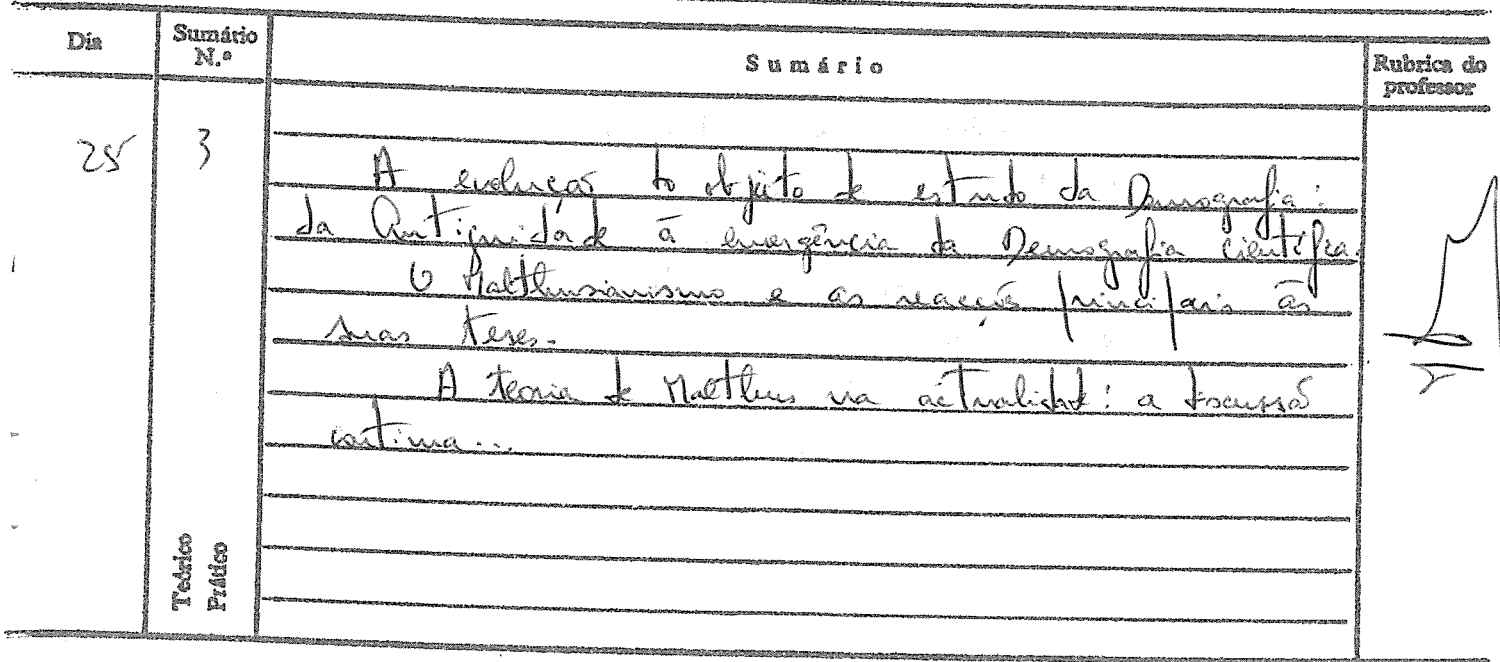 Dia
Sumário
N.º
Sumário
Rubrica do
professor
25
3
A evolução do objeto de estudo da Demografia:
da Antiguidade à emergência da Demografia científica.
O Malthusianismo e as reacções principais às
suas teses.
A teoria de Malthus na actualidade: a discussão
continua...
Teórico
Prático